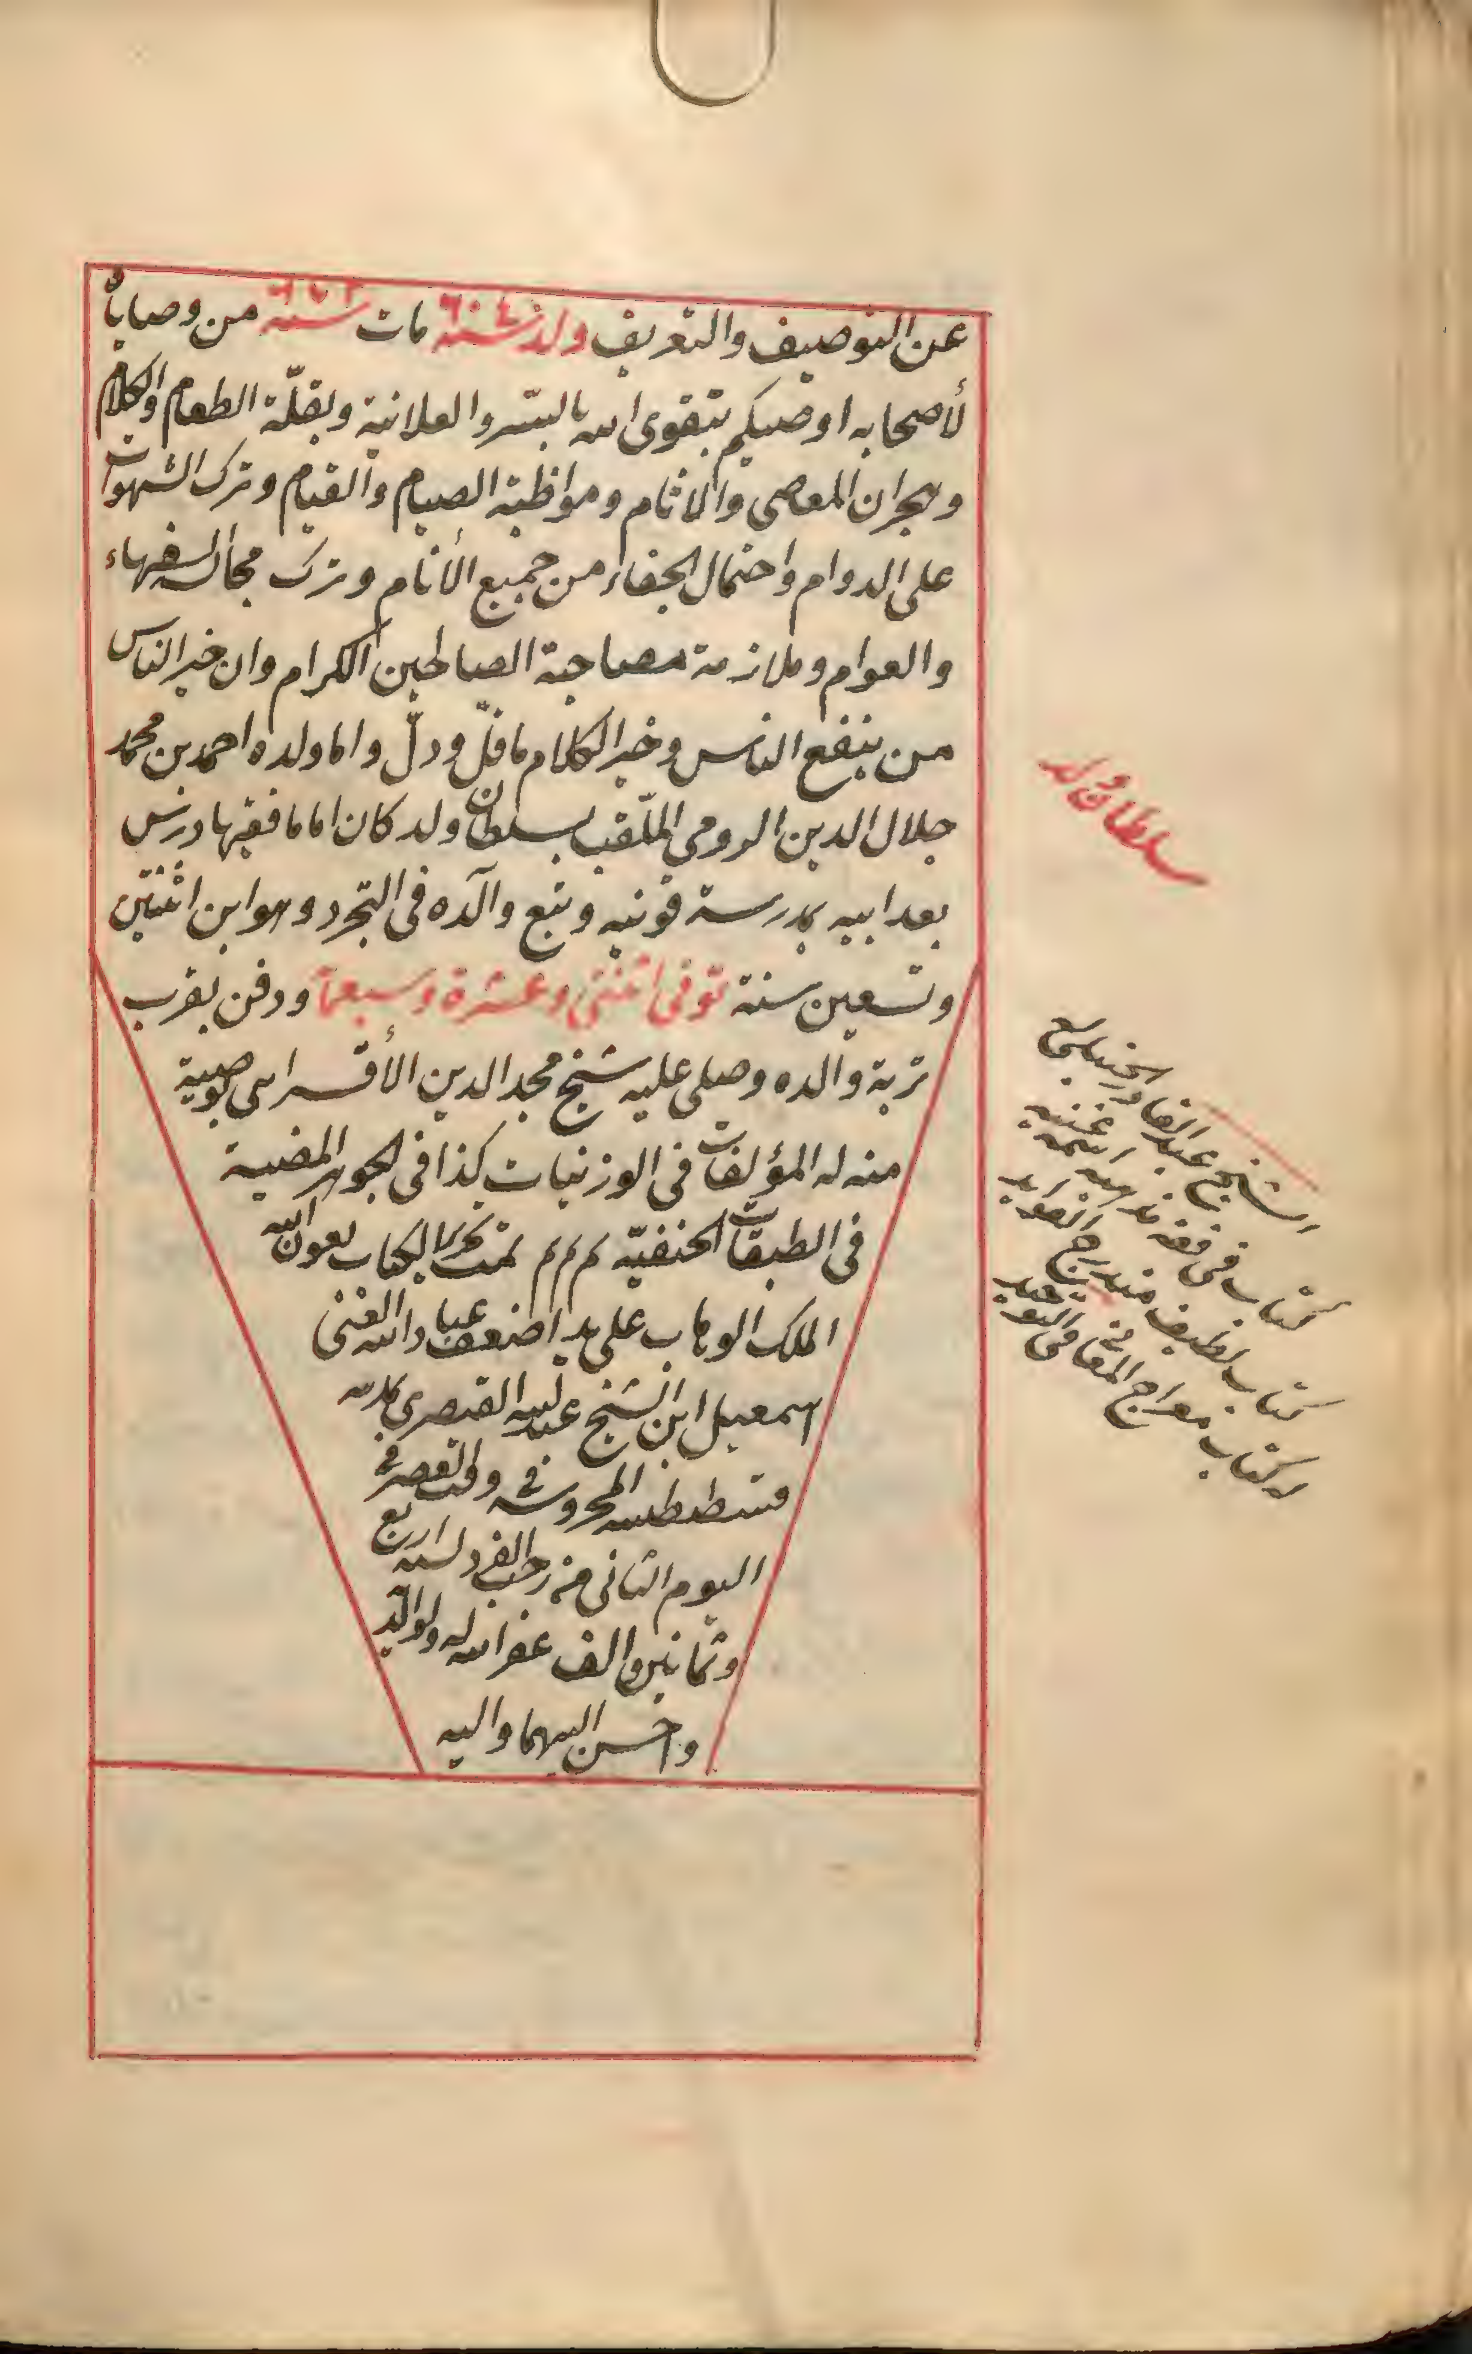 عن التوصيف والتعريف ولد سنة ٦٠٤ مات سنة ٦٧٢ من وصاياه
لأصحابه اوصيكم بتقوى الله بالسر والعلانية وبقلّة الطعام والكلام
وهجران المعاصى والاثام ومواظبة الصيام والقيام وترك الشهوات
على الدوام واحتمال الجفاء من جميع الأنام وترك مجالسه السفهاء
والعوام وملازمة مصاحبة الصالحين الكرام وان خير الناس
من ينفع الناس وخير الكلام ما قلّ ودلّ واما ولده احمد بن محمد
جلال الدين الرومي الملّقب بسلطان ولد كان اماما فقيها درس
بعد ابيه بمدرسة قونيه وتبع والده فى التجرد وهو ابن اثنتين
وتسعين سنة توفى اثنتى وعشرة وسبعمائة ودفن بقرب
تربة والده وصلى عليه شيخ مجد الدين الأقسراىى بوصية
منه له المؤلفات فى الوزنيات كذا فى الجوهر المضية
فى الطبقات الحنفيّه تمت تحرير الكتاب بعون الله
الملك الوهاب على يد اضعف عباد الله الغنى
اسمعيل ابن الشيخ عبد الله القيصري بمدينه
قسطنطنيه المحروسة فى وقت العصر فى
اليوم الثانى من رجب الفرد لسنه اربع
وثمانين والف غفر الله له ولوالديه
واحسن اليهما واليه
سلطان ولد
الشيخ عبد القادر
كتاب فى فقه اسمه غنيه
كتاب لطيف
وكتاب معراج